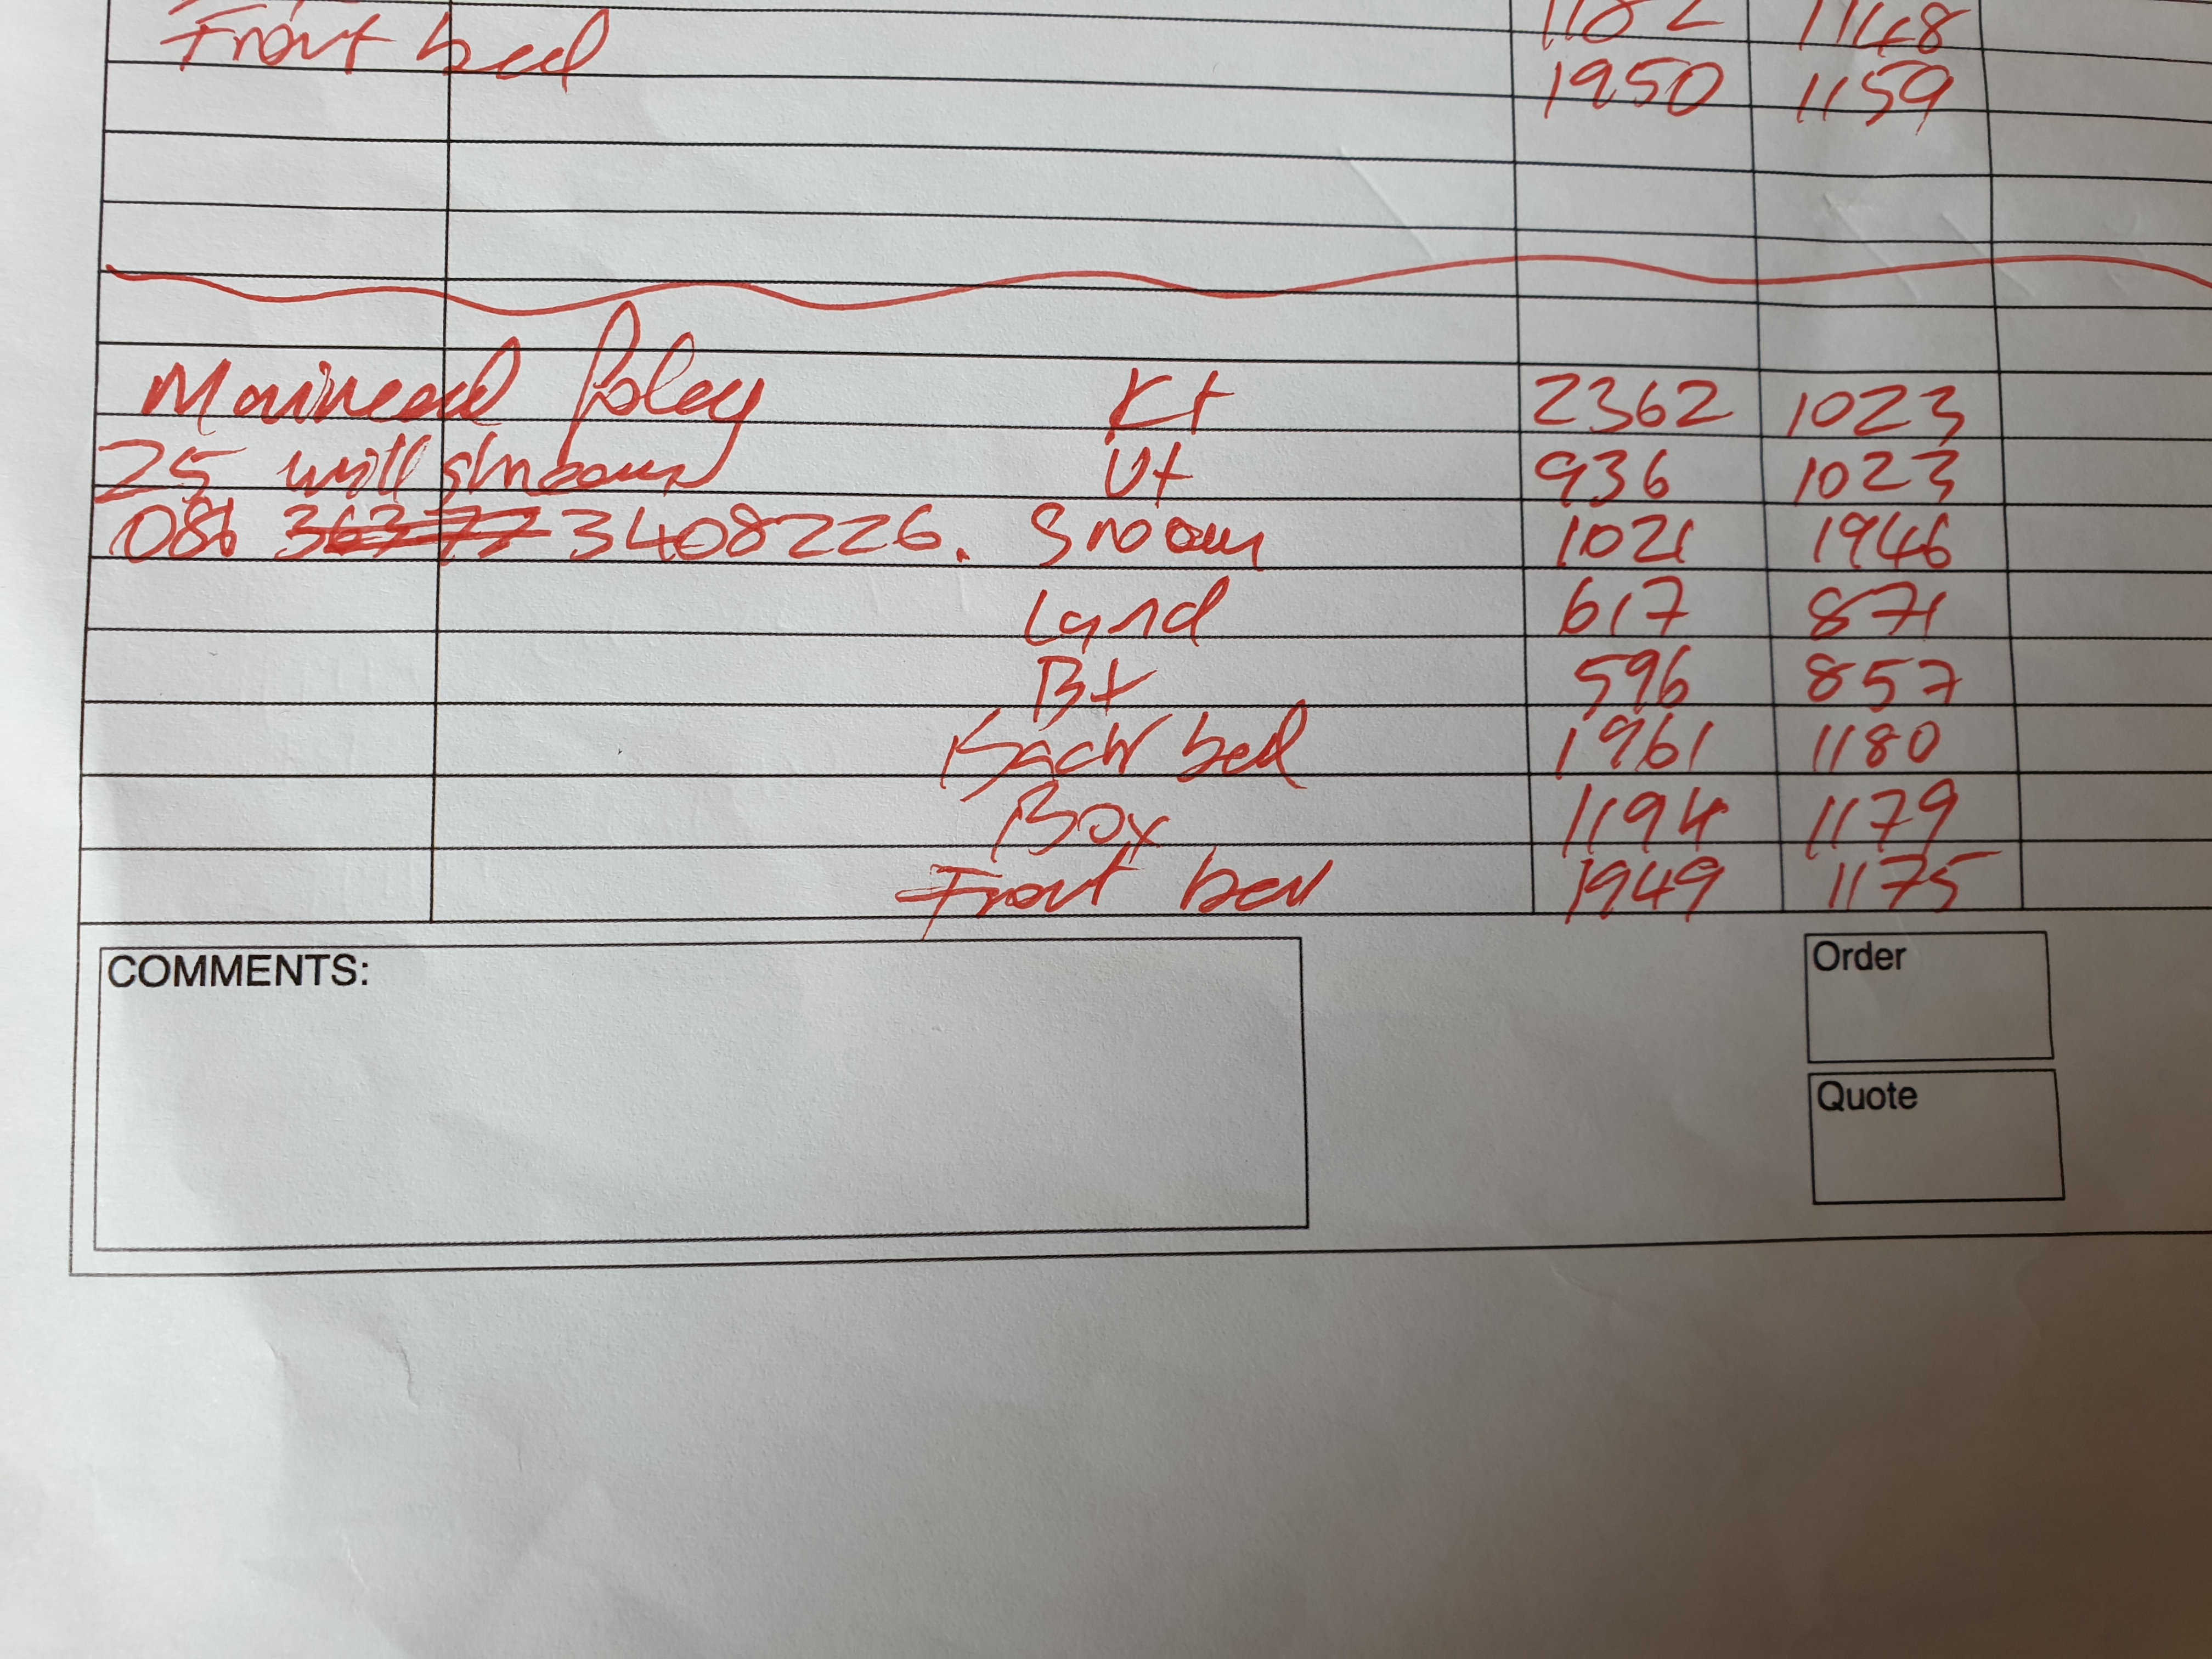 1182 1148
Front bed
1950 1159
Mairead Foley Kt 2362 1023
25 Ut 936 1023
086 3408226. Sroom 1021 1946
Land 617 871
Bt 596 857
Back bed 1961 1180
Box 1194 1179
Front bed 1949 1175
COMMENTS:
Order
Quote